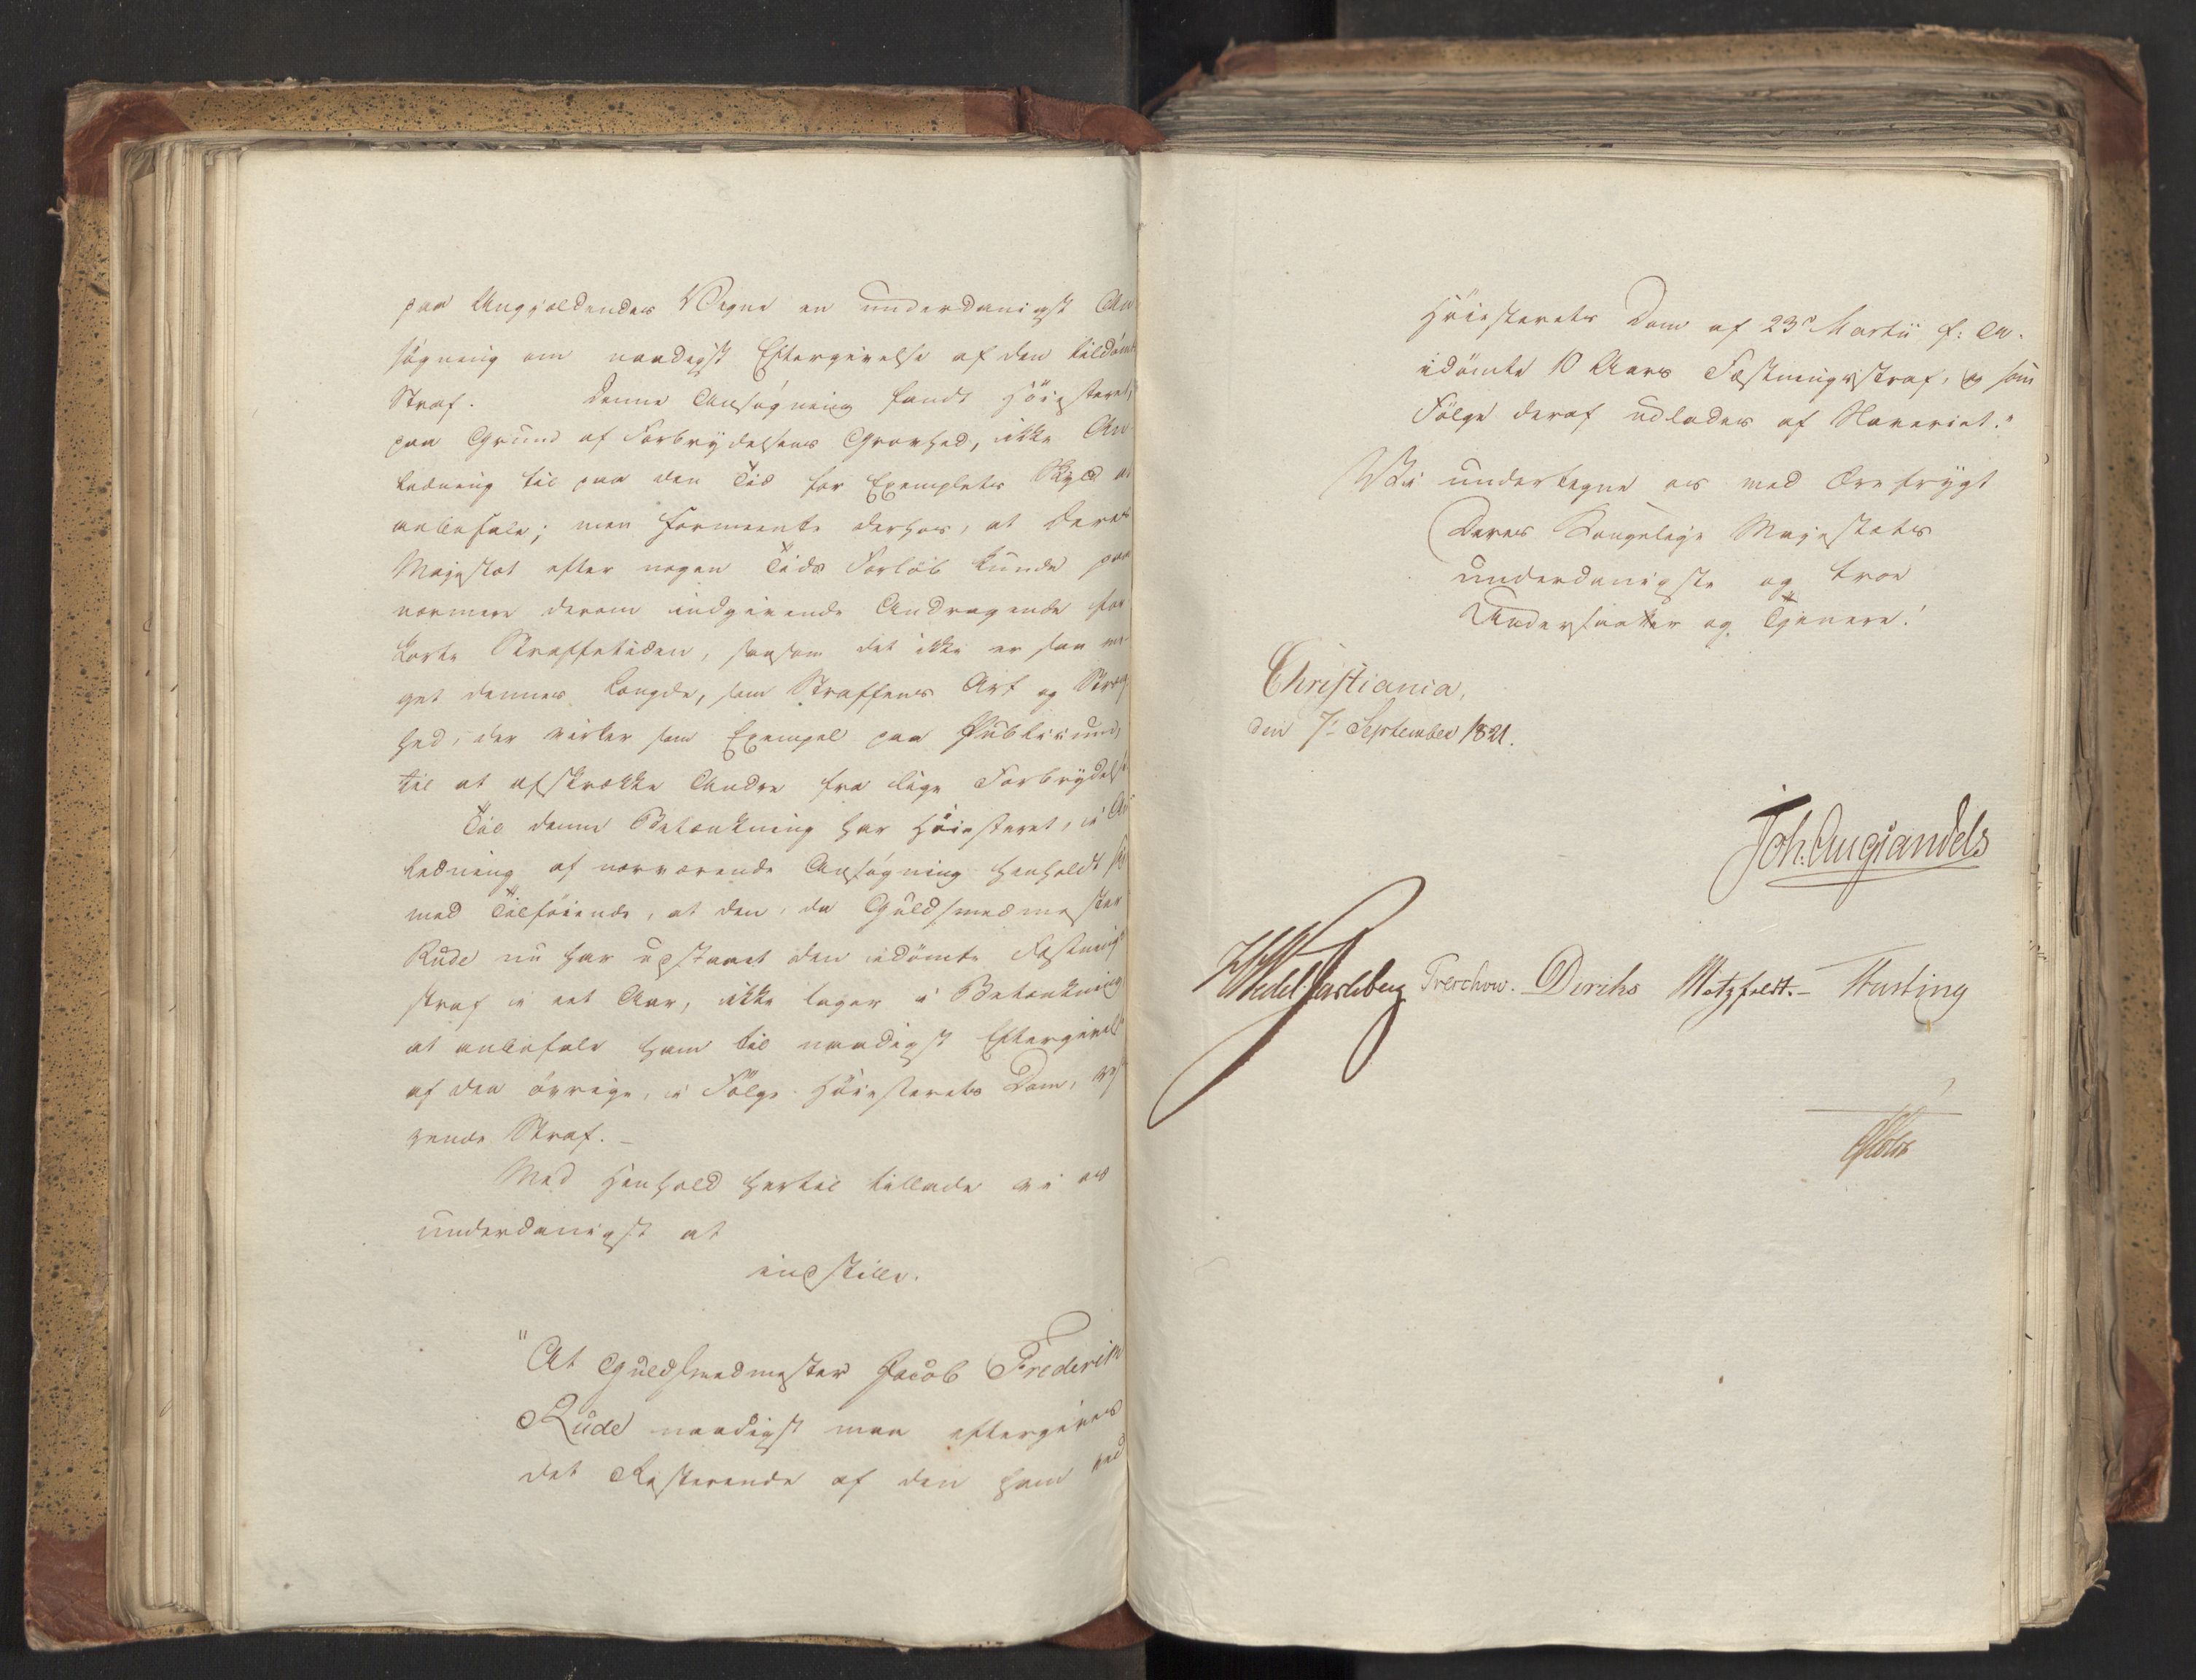 paa Ungjeldendes Vegne en underdanigst An
søgning om naadigst Eftergivelse af den tildømte
Straf. Denne Ansøgning fandt Høiesteret,
paa Grund af Forbrydelsens Grovhed, ikke An
ledning til paa den Tid for Exemplets Skyld at
anbefale; men formeente derhos, at Deres
Majestæt efter nogen Tids Forløb kunde paa
nærmere derom indgivende Andragende for
korte Straffetiden, saasom det ikke er saa me
get dennes Længde, som Straffens Art og Stræng
hed, der virker som Exempel paa Publicum,
til at afskrække Andre fra lige Forbrydelse
Til denne Betænkning har Høiesteret, i An
ledning af nærværende Ansøgning henholdt sig
med Tilføiende, at den, da Guldsmedmester
Rude nu har udstaaet den idømte Fæstnings
straf i eet Aar, ikke tager i Betænkning
at anbefale ham til naadigst Eftergivelse
af den øvrige, i Følge Høiesterets Dom,
rende Straf. –
Med Henhold hertil tillade vi os
underdanigst at
indstille.
"At Guldsmedmester Jacob Frederik
Rude naadigst maa eftergives
det Resterende af den ham ved
Høiesterets Dom af 23de Martii f: A.
idømte 10 Aars Fæstningsstraf, og som
Følge deraf udlades af Slaveriet."
Vi undertegne os med Ærefrygt
Deres Kongelige Majestæts
underdanigste og troe
Undersaatter og Tjenere!
Christiania,
den 7e September 1821.
Joh. Aug Sandels
HWedel Jarlsberg Treschow. Diriks Motzfeldt. – Fasting